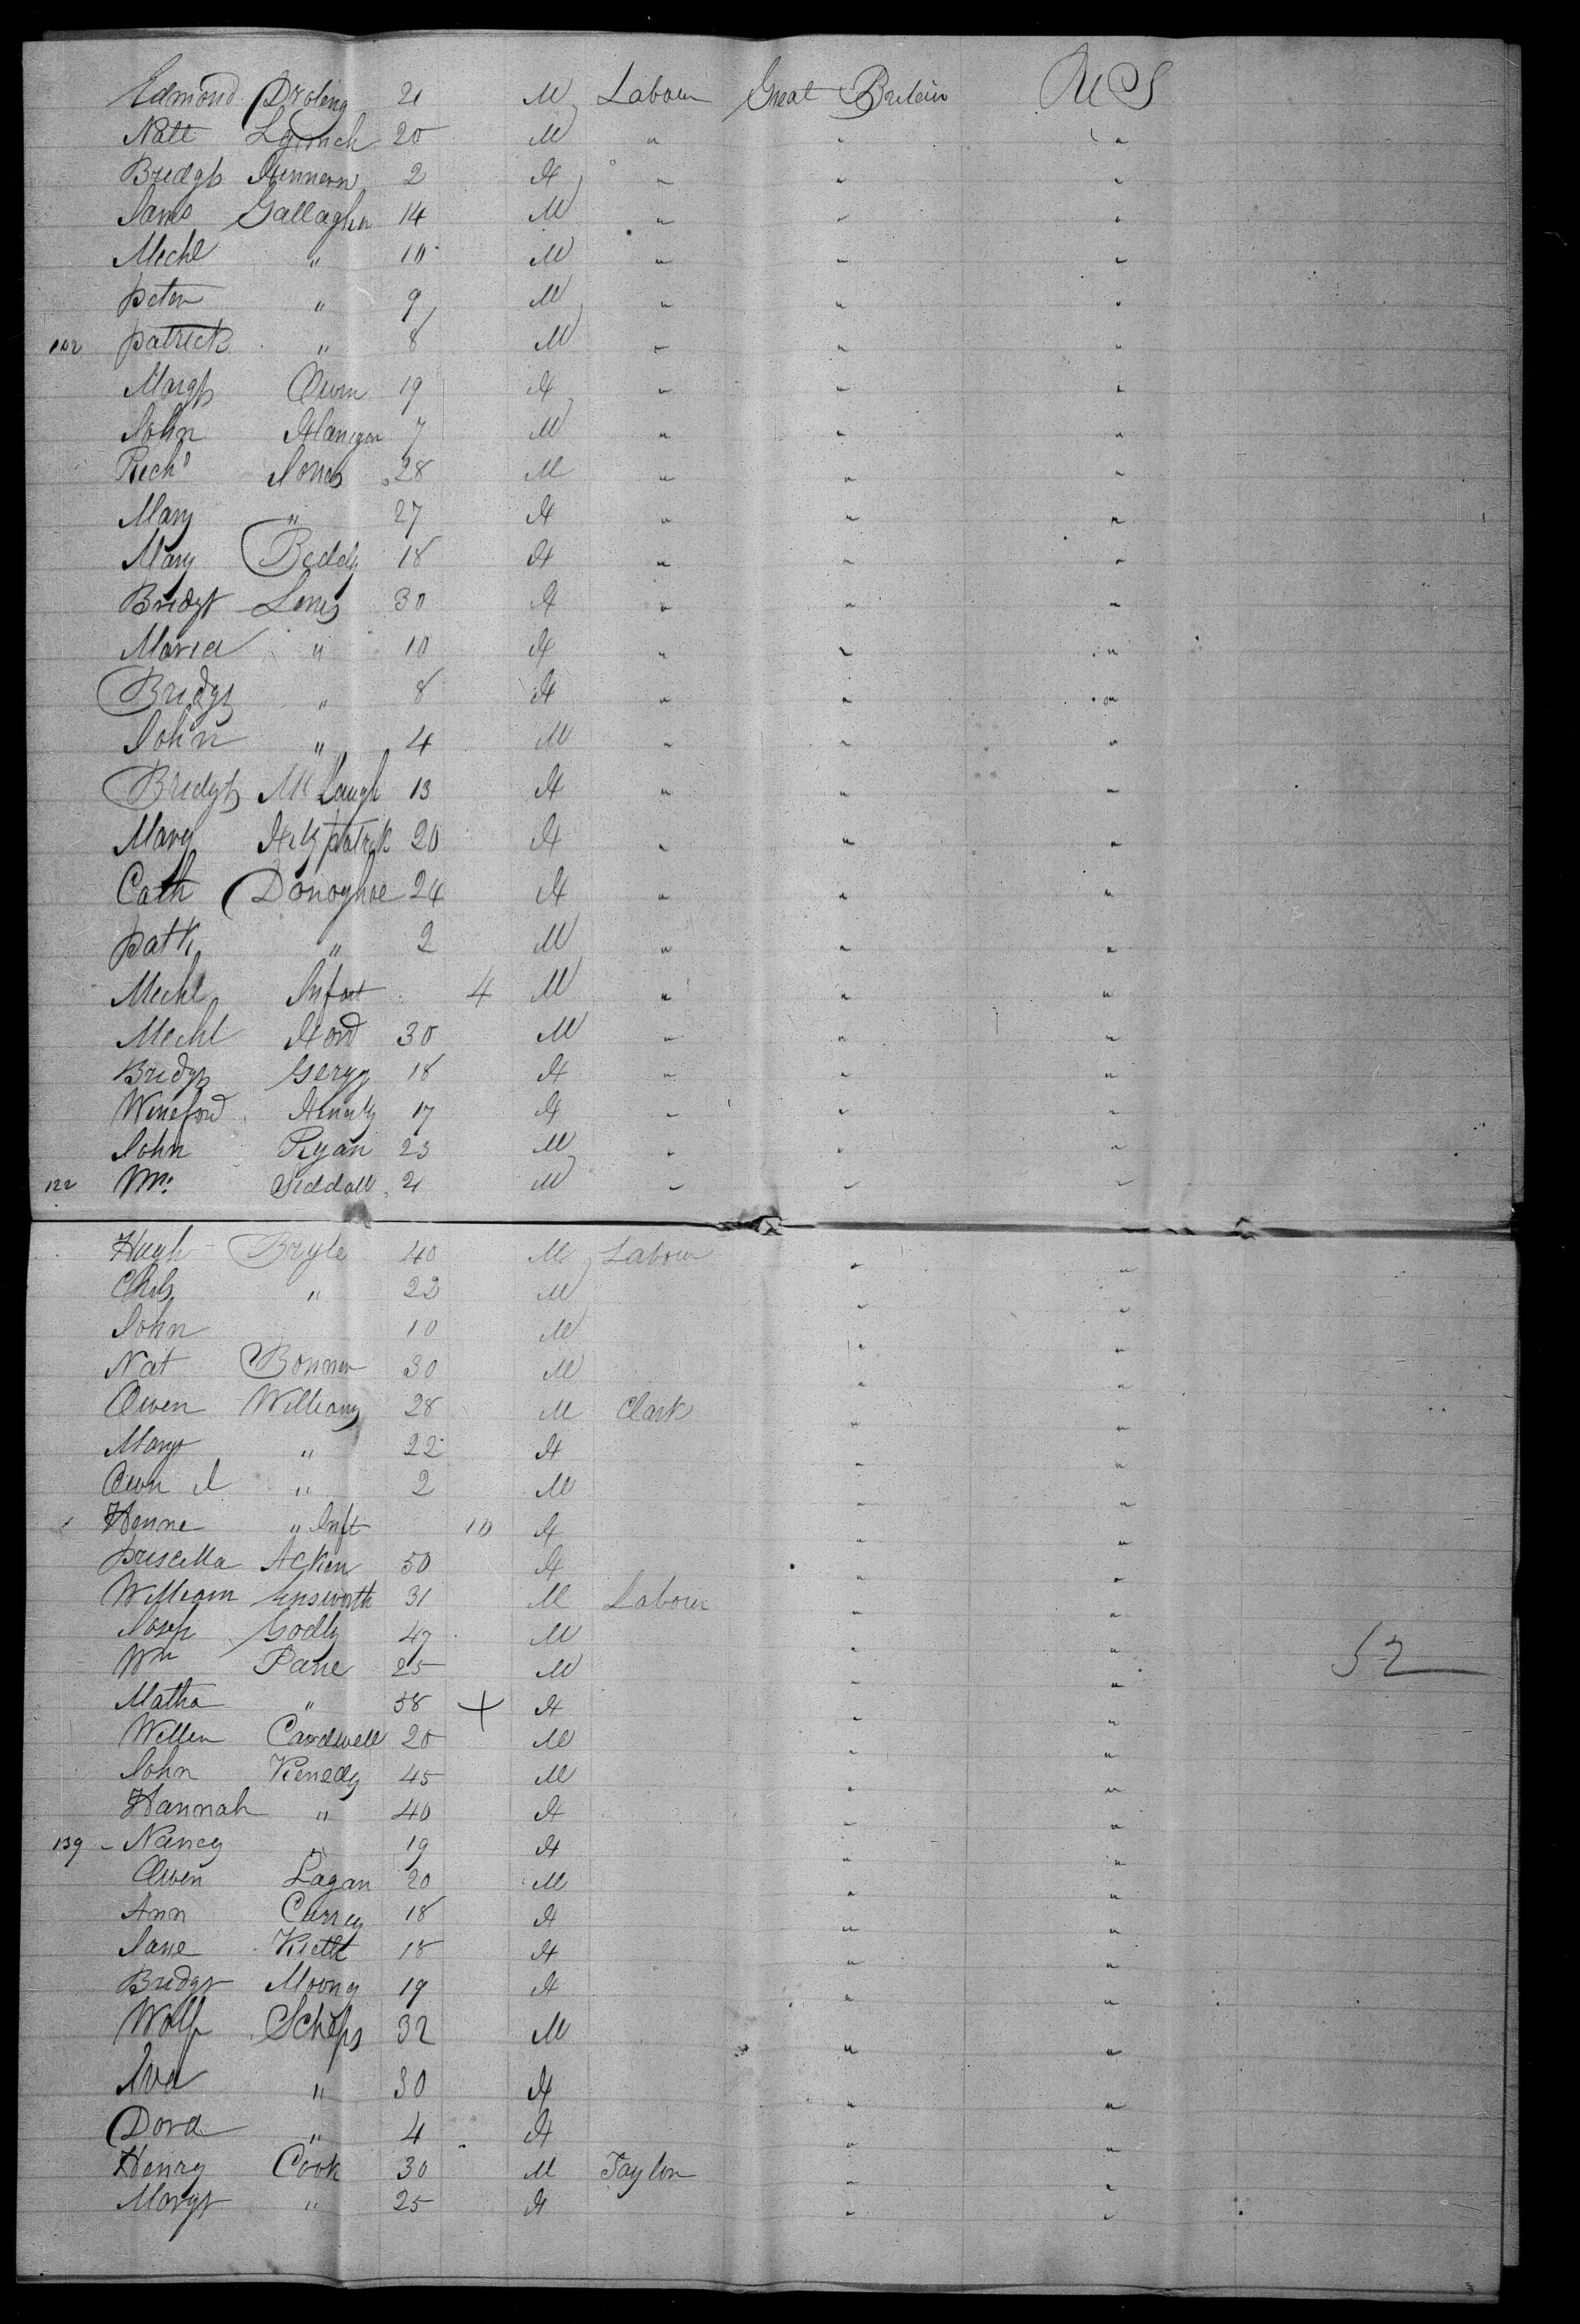 Edmond 21 M Labour Great Britain U S
Natt 20 M " " "
Bridgt 2 F " " "
James Gallagher 14 M " " "
Michl " 10 M " " "
Peter " 9 M " " "
102 Patrick " 8 M " " "
Margt Owen 19 F " " "
John Flanigan 7 M " " "
Richd Jones 28 M " " "
Mary " 27 F " " "
Mary Beddy 18 F " " "
Bridgt 30 F " " "
Maria " 10 F " " "
Bridgt " 8 F " " "
John " 4 M " " "
Bridgt McLaugh 13 F " " "
Mary Fitzpatrick 20 F " " "
Cath Donoghoe 24 F " " "
Patk " 2 M " " "
Michl Infant 4 M " " "
Michl Ford 30 M " " "
Bridgt 18 F " " "
Wineford 17 F " " "
John Ryan 23 M " " "
122 Wm. Siddall 21 M " " "
Hugh 40 M Labour " "
" 22 M " "
John 10 M " "
Nat Bonner 30 M " "
Owen Williams 28 M Clark " "
Margt " 22 F " "
Owen J " 2 M " "
" Inft 10 F " "
Priscella 50 F " "
William 31 M Labour " "
Joseph Godly 47 M " "
Wm Pane 25 M " " 52
Matha " 58 + F " "
Cardwell 20 M " "
John Kenedy 45 M " "
Hannah " 40 F " "
139 - Nancy " 19 F " "
Owen Lagan 20 M " "
Ann Currey 18 F " "
Jane 18 F " "
Bridgt Moony 19 F " "
Wolf Scheps 32 M " "
" 30 F " "
Dora " 4 F " "
Henry Cook 30 M Taylor " "
Margt " 25 F " "